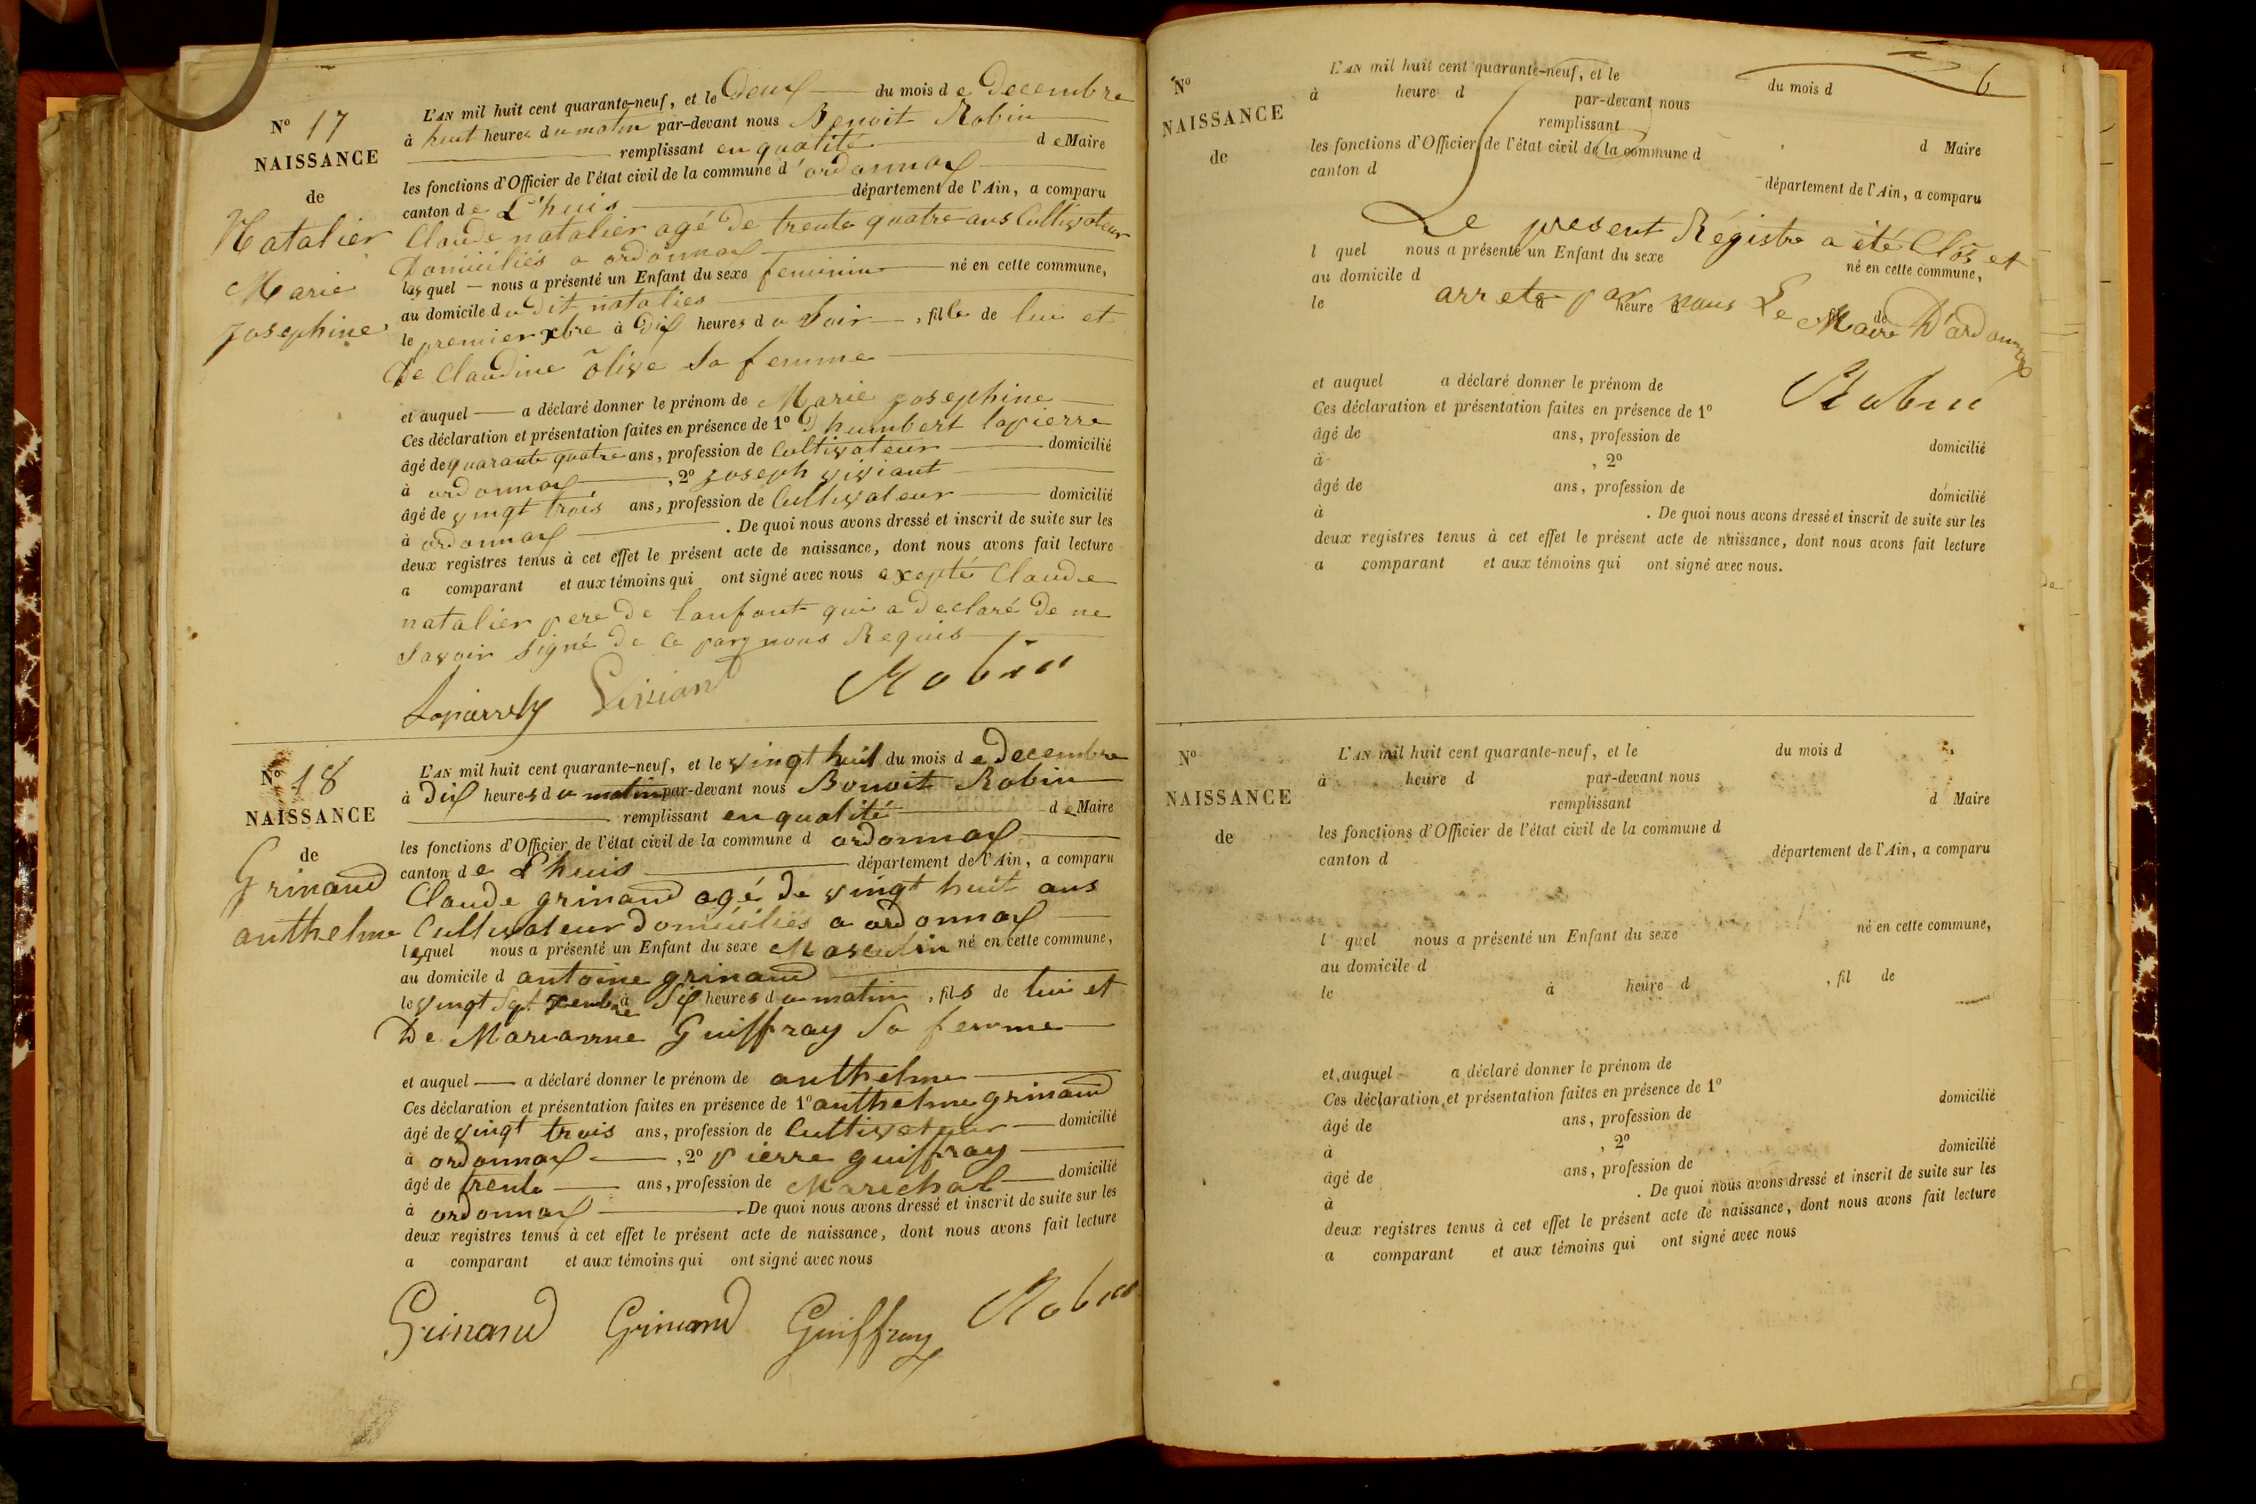 N° 17
NAISSANCE
de
Natalier
Marie
josephine
L'AN mil huit cent quarante-neuf, et le Deux du mois de Decembre
à huit heures du matin par-devant nous Benoit Robin
remplissant en qualité de Maire
les fonctions d'Officier de l'état civil de la commune d'ordonnax
canton de L'huis département de l'Ain, a comparu
Claude natalier agé de trente quatre ans Cultivateur
Domiciliés a ordonnax
lequel nous a présenté un Enfant du sexe feminin né en cette commune,
au domicile du Dit natalier
le premier xbre à Dix heures du Soir, fille de lui et
De Claudine olive Sa femme
et auquel a déclaré donner le prénom de Marie josephine
Ces déclaration et présentation faites en présence de 1° humbert lapierre
âgé de quarante quatre ans, profession de Cultivateur domicilié
à ordonnax, 2° joseph viviant
âgé de vingt trois ans, profession de Cultivateur domicilié
à ordonnax. De quoi nous avons dressé et inscrit de suite sur les
deux registres tenus à cet effet le présent acte de naissance, dont nous avons fait lecture
a comparant et aux témoins qui ont signé avec nous exepté Claude
natalier pere de lanfant qui a declaré De ne
Savoir Signé de ce par nous Requis
Vivian Robin
N° 18
NAISSANCE
de
Grinand
anthelme
L'AN mil huit cent quarante-neuf, et le vingt huit du mois de Decembre
à Dix heures du matin par-devant nous Benoit Robin
remplissant en qualité de Maire
les fonctions d'Officier de l'état civil de la commune d ordonnax
canton de L'huis département de l'Ain, a comparu
Claude grinand agé de vingt huit ans
Cultivateur domiciliés a ordonnax
lequel nous a présenté un Enfant du sexe Masculin né en cette commune,
au domicile d antoine grinand
le vingt Sept à Six heures du matin, fils de lui et
De Marianne Guiffray Sa femme
et auquel a déclaré donner le prénom de anthelme
Ces déclaration et présentation faites en présence de 1° anthelme grinand
âgé de vingt trois ans, profession de Cultivateur domicilié
à ordonnax, 2° pierre guiffray
âgé de trente ans, profession de Marechal domicilié
à ordonnax. De quoi nous avons dressé et inscrit de suite sur les
deux registres tenus à cet effet le présent acte de naissance, dont nous avons fait lecture
a comparant et aux témoins qui ont signé avec nous
Grinand Grinand Guiffray Robin
6
N°
NAISSANCE
de
L'AN mil huit cent quarante-neuf, et le du mois d
à heure d par-devant nous
remplissant d Maire
les fonctions d'Officier de l'état civil de la commune d
canton d département de l'Ain, a comparu
Le present Régistre a été Clos et
l quel nous a présenté un Enfant du sexe né en cette commune,
au domicile d
arreté par nous Le Maire D'ardonnax
le à heure d fil de
Robin
et auquel a déclaré donner le prénom de
Ces déclaration et présentation faites en présence de 1°
âgé de ans, profession de domicilié
à , 2°
âgé de ans, profession de domicilié
à . De quoi nous avons dressé et inscrit de suite sur les
deux registres tenus à cet effet le présent acte de naissance, dont nous avons fait lecture
a comparant et aux témoins qui ont signé avec nous.
N°
NAISSANCE
de
L'AN mil huit cent quarante-neuf, et le du mois d
à heure d par-devant nous
remplissant d Maire
les fonctions d'Officier de l'état civil de la commune d
canton d département de l'Ain, a comparu
l quel nous a présenté un Enfant du sexe né en cette commune,
au domicile d
le à heure d , fil de
et auquel a déclaré donner le prénom de
Ces déclaration et présentation faites en présence de 1°
âgé de ans, profession de domicilié
à , 2°
âgé de ans, profession de domicilié
à . De quoi nous avons dressé et inscrit de suite sur les
deux registres tenus à cet effet le présent acte de naissance, dont nous avons fait lecture
a comparant et aux témoins qui ont signé avec nous